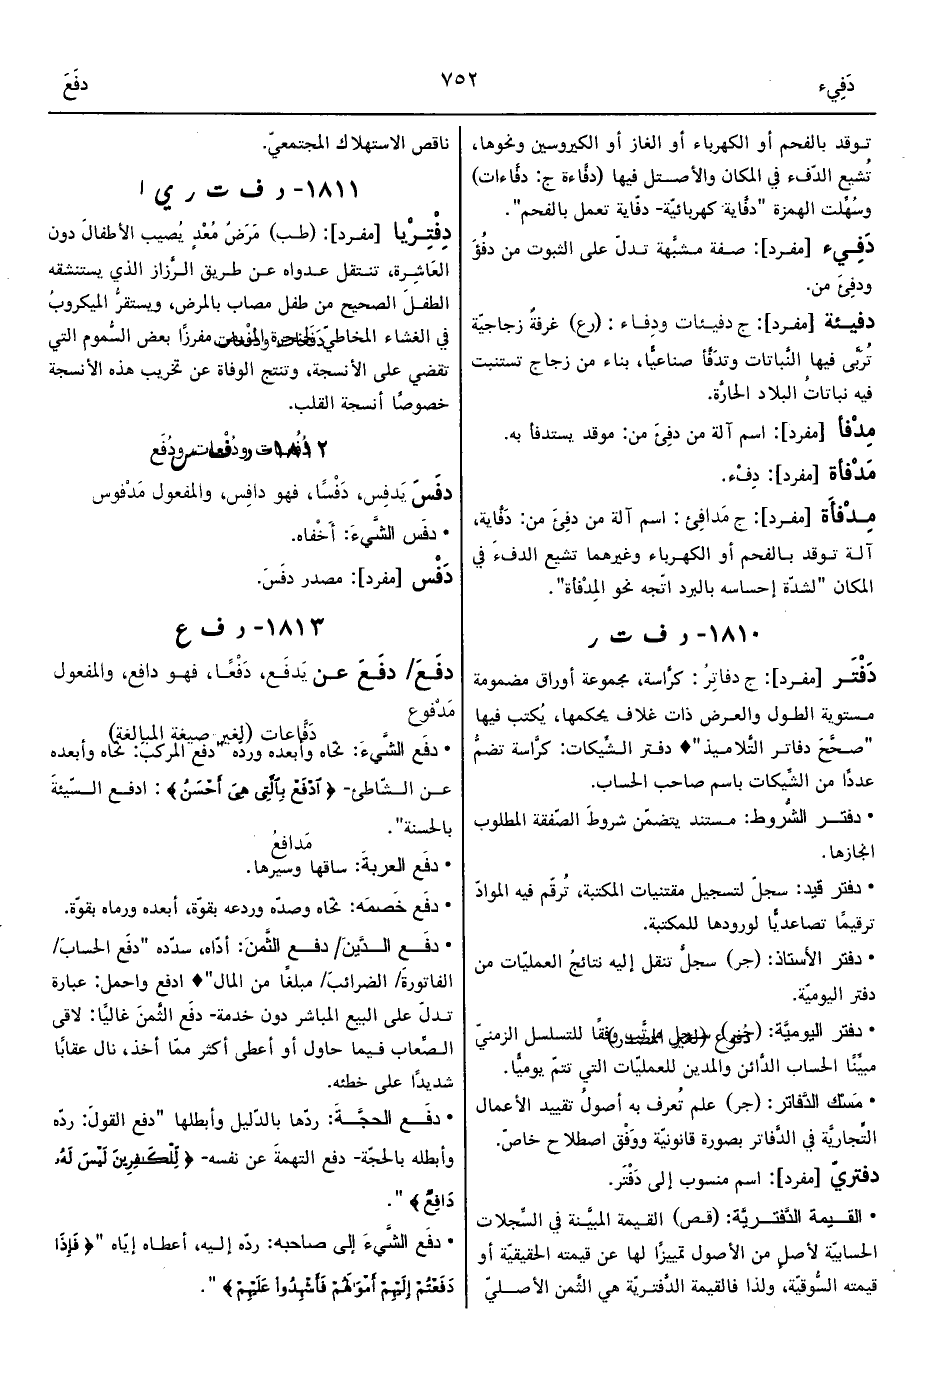 دَفِيء
٧٥٢
دفَعَ
توقد بالفحم أو الكهرباء أو الغاز أو الكيروسين ونحوها،
تُشيع الدّفء في المكان والأصل فيها (دفّاءة ج: دفّاءات)
وسُهِّلت الهمزة "دفّاية كهربائيّة- دفّاية تعمل بالفحم".
دَفِيء [مفرد]: صفة مشبَّهة تدلّ على الثبوت من دفُؤَ
ودفِئَ من.
دفيئة [مفرد]: ج دفيئات ودِفاء : (رع) غرفةٌ زجاجيّة
تُربَّى فيها النَّباتات وتدفَّأ صناعيًّا، بناء من زجاج تستنبت
فيه نباتاتُ البلاد الحارَّة.
مِدْفَأ [مفرد]: اسم آلة من دفِئَ من: موقد يستدفأ به.
مَدْفأة [مفرد]: دِفْء.
مِدْفَأة [مفرد]: ج مَدافِئ : اسم آلة من دفِئَ من: دَفّاية،
آلة توقد بالفحم أو الكهرباء وغيرهما تشيع الدفءَ في
المكان "لشدّة إحساسه بالبرد اتّجه نحو المِدْفأة".
١٨١٠- د ف ت ر
دَفْتَر [مفرد]: ج دفاترُ : كرَّاسة، مجموعة أوراق مضمومة
مستوية الطول والعرض ذات غلاف يحكمها، يُكتب فيها
"صحَّحَ دفاتر التَّلاميذ"♦ دفتر الشِّيكات: كرَّاسة تضمُّ
عددًا من الشِّيكات باسم صاحب الحساب.
• دفتر الشُّروط: مستند يتضمّن شروطَ الصَّفقة المطلوب
انجازها.
• دفتر قيد: سجلّ لتسجيل مقتنيات المكتبة، تُرقَّم فيه الموادّ
ترقيمًا تصاعديًّا لورودها للمكتبة.
• دفتر الأستاذ: (جر) سجلٌّ تنقل إليه نتائجُ العمليّات من
دفتر اليوميّة.
• دفتر اليوميَّة: (جر) للتسلسل الزمنيّ
مبيِّنًا الحساب الدَّائن والمدين للعمليات التي تتمّ يوميًّا.
• مَسْك الدَّفاتر: (جر) علم تُعرف به أصولُ تقييد الأعمال
التّجاريَّة في الدَّفاتر بصورة قانونيّة ووَفْق اصطلاح خاصّ.
دفتريّ [مفرد]: اسم منسوب إلى دَفْتَر.
• القيمة الدَّفتريَّة: (قص) القيمة المبيَّنة في السِّجلات
الحسابيَّة لأصلٍ من الأصول تمييزًا لها عن قيمته الحقيقيَّة أو
قيمته السُّوقيَّة، ولذا فالقيمة الدَّفتريَّة هي الثّمن الأصليّ
ناقص الاستهلاك المجتمعيّ.
١٨١١- د ف ت ر ي ا
دِفْتِرْيا [مفرد]: (طب) مَرَضٌ مُعْدٍ يُصيب الأطفالَ دون
العَاشرة، تنتقل عدواه عن طريق الرَّزاز الذي يستنشقه
الطفل الصحيح من طفل مصاب بالمرض، ويستقرُّ الميكروبُ
في الغشاء المخاطيّ مفرزًا بعض السُّموم التي
تقضي على الأنسجة، وتنتج الوفاة عن تخريب هذه الأنسجة
خصوصًا أنسجة القلب.
دُفُعات ودُفْعات ودُفَع
دفَسَ يَدفِس، دَفْسًا، فهو دافِس، والمفعول مَدْفوس
• دفَس الشَّيءَ: أخْفاه.
دَفْس [مفرد]: مصدر دفَسَ.
١٨١٣- د ف ع
دفَعَ/ دفَعَ عن يَدفَع، دَفْعًا، فهو دافِع، والمفعول
مَدْفوع
دَفَّاعات (لغير صيغة المبالغة)
• دفَع الشَّيءَ: نحّاه وأبعده وردّه "دفع المركبَ: نحّاه وأبعده
عن الشاطئ- ﴿ ٱدْفَعْ بِٱلَّتِى هِىَ أَحْسَنُ ﴾ : ادفع السّيئةَ
بالحسنة".
مَدافعُ
• دفَع العربةَ: ساقها وسيرها.
• دفَع خصمَه: نحّاه وصدّه وردعه بقوّة، أبعده ورماه بقوّة.
• دفَع الدَّيْنَ/ دفع الثَّمنَ: أدّاه، سدّده "دفَع الحساب/
الفاتورة/ الضرائبَ/ مبلغًا من المال"♦ ادفع واحمل: عبارة
تدلّ على البيع المباشر دون خدمة- دفَع الثَّمنَ غاليًا: لاقى
الصِّعاب فيما حاول أو أعطى أكثر ممّا أخذ، نال عقابًا
شديدًا على خطئه.
• دفَع الحجَّةَ: ردّها بالدّليل وأبطلها "دفع القولَ: ردّه
وأبطله بالحجّة- دفع التهمةَ عن نفسه- ﴿ لِّلْكَٰفِرِينَ لَيْسَ لَهُۥ
دَافِعٌ ﴾ ".
• دفَع الشَّيءَ إلى صاحبه: ردّه إليه، أعطاه إيّاه "﴿ فَإِذَا
دَفَعْتُمْ إِلَيْهِمْ أَمْوَٰلَهُمْ فَأَشْهِدُوا۟ عَلَيْهِمْ ﴾ ".